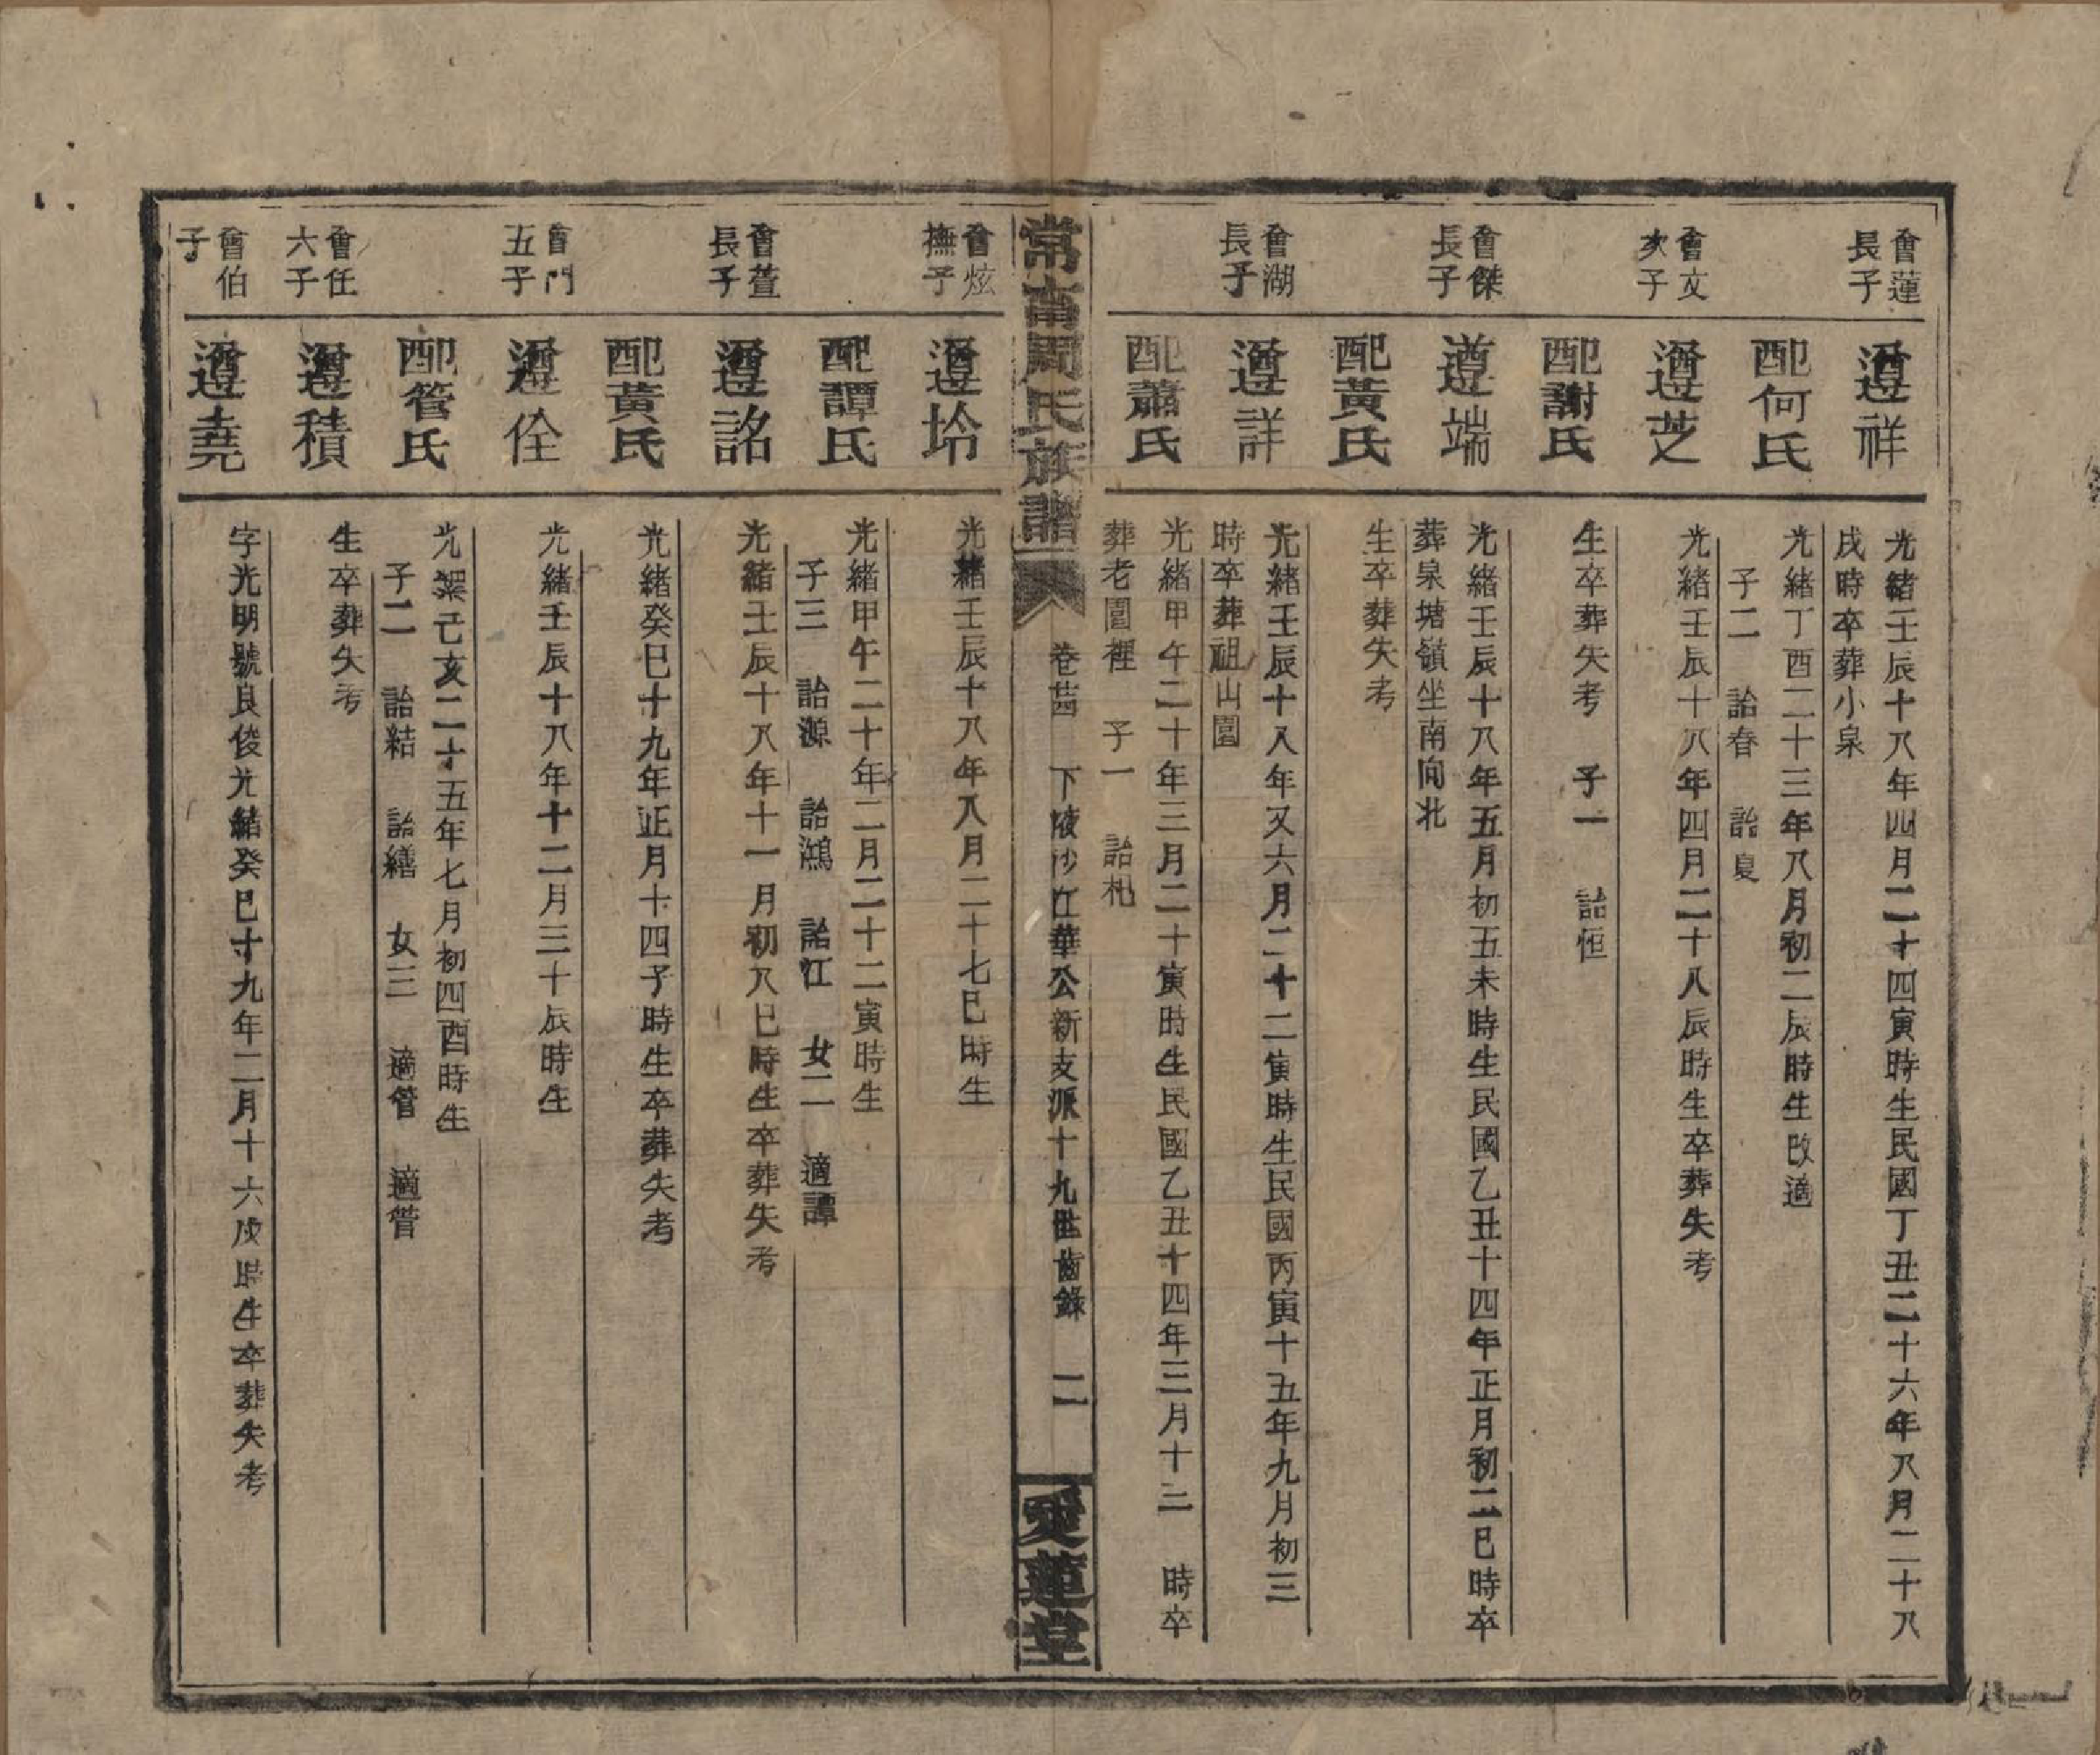 會蓮
長子
遵祥
光緒壬辰十八年四月二十四寅時生民國丁丑二十六年八月二十八
戌時卒葬小泉
配何氏
光緒丁酉二十三年八月初二辰時生改適
子二　詒春　詒夏
會文
次子
遵芝
光緒壬辰十八年四月二十八辰時生卒葬失考
配謝氏
生卒葬失考　子一　詒恒
會傑
長子
遵端
光緒壬辰十八年五月初五未時生民國乙丑十四年正月初二巳時卒
葬泉塘嶺坐南向北
配黃氏
生卒葬失考
會湖
長子
遵詳
光緒壬辰十八年又六月二十二寅時生民國丙寅十五年九月初三
時卒葬祖山園
配蕭氏
光緒甲午二十年三月二十寅時生民國乙丑十四年三月十三　時卒
葬老園裡　子一　詒杞
常南周氏族譜
卷　下液沙江華公新支派十九世齒錄　二
愛蓮堂
會炫
撫子
遵坽
光緒壬辰十八年八月二十七巳時生
配譚氏
光緒甲午二十年二月二十二寅時生
子三　詒源　詒鴻　詒江　女二　適譚
會萱
長子
遵詺
光緒壬辰十八年十一月初八巳時生卒葬失考
配黃氏
光緒癸巳十九年正月十四子時生卒葬失考
會門
五子
遵佺
光緒壬辰十八年十二月三十辰時生
配管氏
光緒己亥二十五年七月初四酉時生
子二　詒結　詒繕　女三　適管　適管
會任
六子
遵積
生卒葬失考
會伯
子
遵堯
字光明號良俊光緒癸巳十九年二月十六戌時生卒葬失考